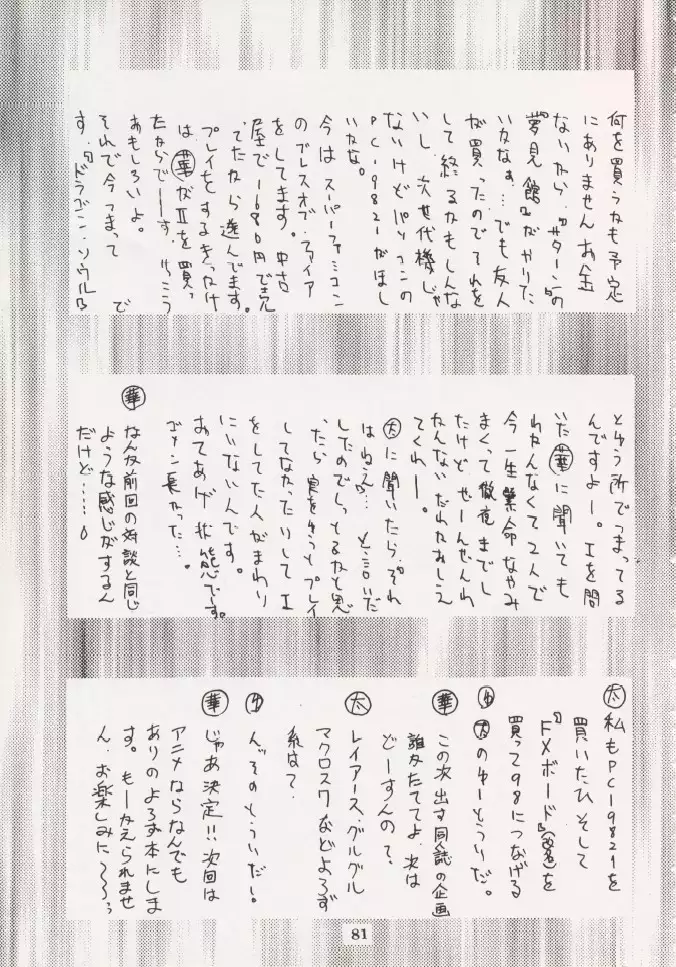 何を買うかも予定
にありません お金
ないから、『サターン』の
『夢見館』がやりた
いかなぁ…でも友人
が買ったのでそれを
して終るかもしんな
いし、次世代機じゃ
ないけどパソコンの
PC-9821がほし
いかな。
今はスーパーファミコン
のブレスオブ・ファイア
をしてます。中古
屋で1680円で売
ってたから遊んでます。
プレイをするきっかけ
は華がⅡを買っ
たからでーす。けっこう
おもしろいよ。
それで今つまって で
す。『ドラゴン・ソウル』
とゆう所でつまってる
んですよー。Ⅰを聞
いた華に聞いても
わかんなくて2人で
今一生懸命なやみ
まくって徹夜までし
たけど、ぜーんぜんわ
かんないだれかおしえ
てくれー。
太に聞いたら、"それ
はねえ〜"と言いだ
したのでしってるかと思
ったら実をゆうとプレイ
してなかったりしてⅠ
をしてた人がまわり
にいないんです。
おてあげ状態です。
ゴメン長かった…。
華 なんか前回の対談と同じ
ような感じがするん
だけど……
太 私もPC-9821を
買いたひ そして
『FXボード』(名)を
買って98につなげる
ゆ 太のゆーとうりだ。
華 この次出す同人誌の企画
誰かたててよ、次は
どーすんの?
太 レイアース、グルグル
マクロス7などよろず
系は?
ゆ んっそのとうりだ!
華 じゃあ決定!!次回は
アニメならなんでも
ありのよろず本にしま
す。もーかえられませ
ん。お楽しみに〜
81